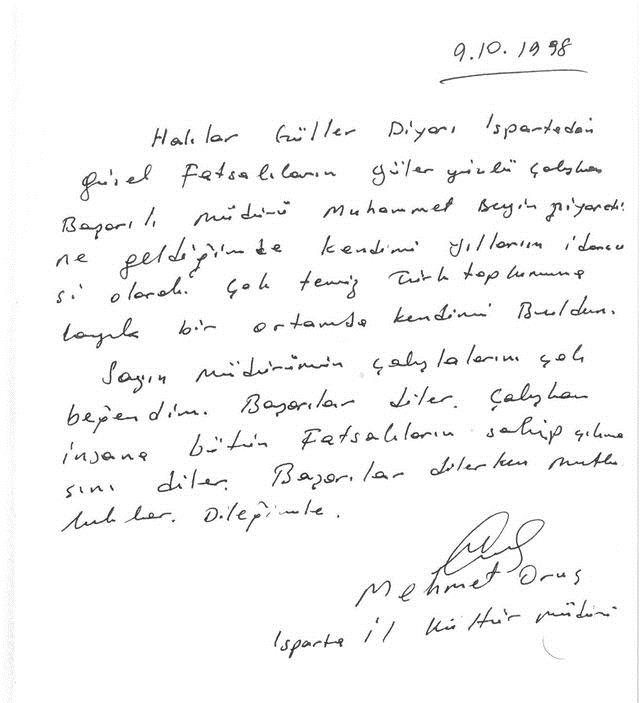 9.10.1998
Halılar Güller Diyarı Ispartadan
güzel Fatsalıların güler yüzlü çalışkan
Başarılı müdürü Muhammet Beyin ziyareti
ne geldiğimde kendimi yılların idareci
si olarak çok temiz Türk toplumuna
layık bir ortamda kendimi Buldum.
Sayın müdürümün çalışlalarını çok
beğendim. Başarılar diler. Çalışkan
insana bütün Fatsalıların sahip çıkma
sını diler. Başarılar dilerken mutlu
luklar. Dileğimle.
Mehmet Oruç
Isparta İl Kültür müdürü